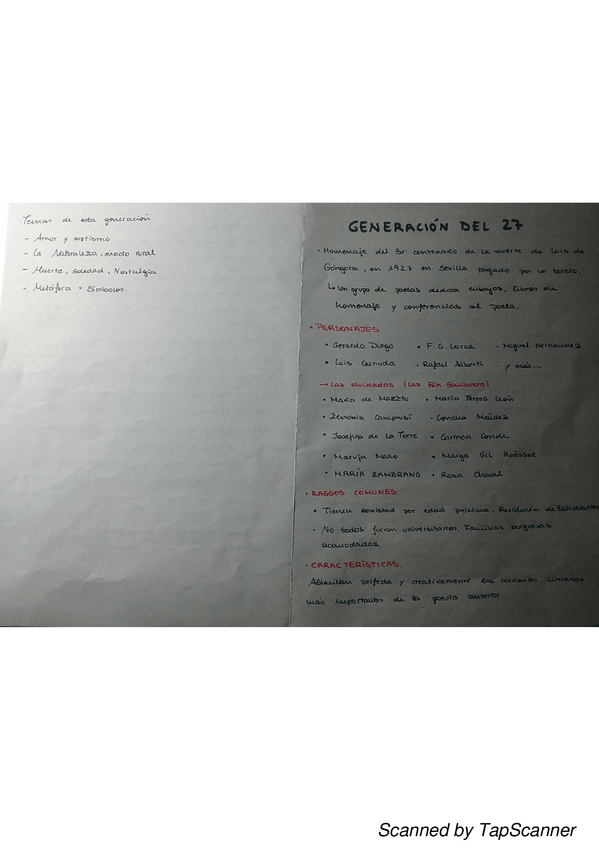 Temas de esta generación
- Amor y erotismo
- La Naturaleza, éxodo rural
- Muerte, soledad, Nostalgia
- Metáfora + Símbolos.
GENERACIÓN DEL 27
• Homenaje del 3r centenario de la muerte de Luis de
Góngora, en 1927 en Sevilla pagado por un torero.
↳ Un grupo de poetas dedica ensayos, libros de
homenaje y conferencias al poeta.
• PERSONAJES
• Gerardo Diego • F.G. Lorca - Miguel Hernandez
• Luis Cernuda • Rafael Alberti - y más...
→ Las olvidadas (Las Sin Sombrero)
• María de Maeztu • María Teresa León
• Zenobia Camprubí - Concha Méndez
• Josefina de la Torre • Carmen Conde
• Maruja Mallo • Marga Gil Roësset
• MARÍA ZAMBRANO • Rosa Chacel
• RASGOS COMUNES
• Tienen amistad por edad próxima. Residencia de Estudiantes
• No todos fueron universitarios. Familias burguesas
acomodadas.
• CARACTERÍSTICAS.
Asimilan perfecta y creativamente las corrientes literarias
más importantes de la poesía anterior.
Scanned by TapScanner